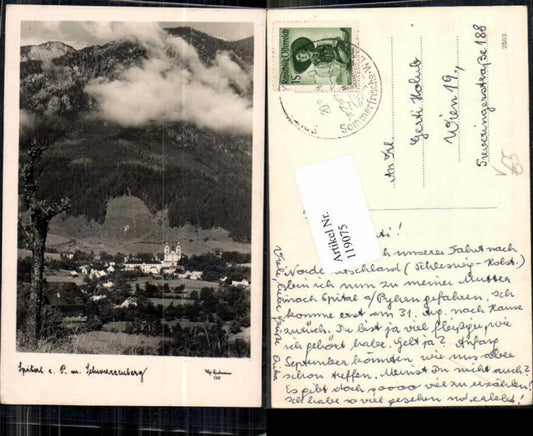 Spital a. P. m. Schwarzenberg
Republik Österreich
Sommerfrische
2563
An Frl.
Gerti Holub
Wien 19.,
Sieveringerstraße 188
Artikel Nr.
119075
ti!
ch unserer Fahrt nach
Norddeutschland (Schleswig-Holst.)
bin ich nun zu meiner Mutter
nach Spital a/Pyhrn gefahren. Ich
komme erst am 31. Aug. nach Hause
zurück. Du bist ja viel fleißig, wie
ich gehört habe. Gelt ja? Anfang
September könnten wir uns aber
schon treffen. Meinst Du nicht auch?
Es gibt doch soooo viel zu erzählen!
Ich habe so viel gesehen und erlebt!
Viele liebe Grüße Erika